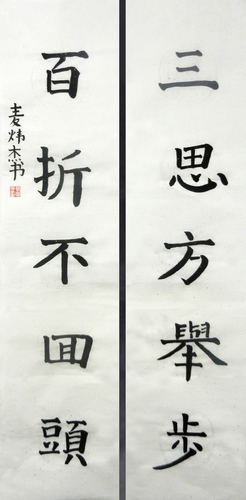 三思方舉步
百折不回頭
麦炜杰书